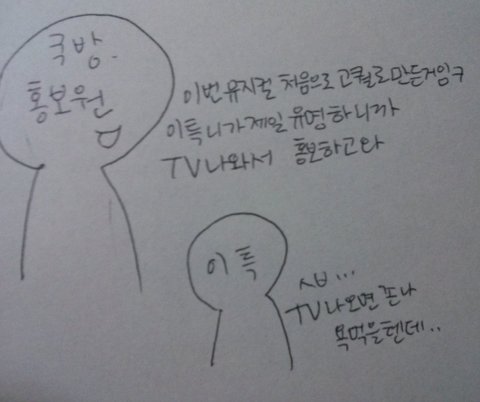 국방.
홍보원
이번 뮤지컬 처음으로 고퀄로 만든거임ㅋ
이특 니가 제일 유명하니까
TV 나와서 홍보하고와
이특
ㅅㅂ...
TV 나오면 존나
욕먹을텐데..